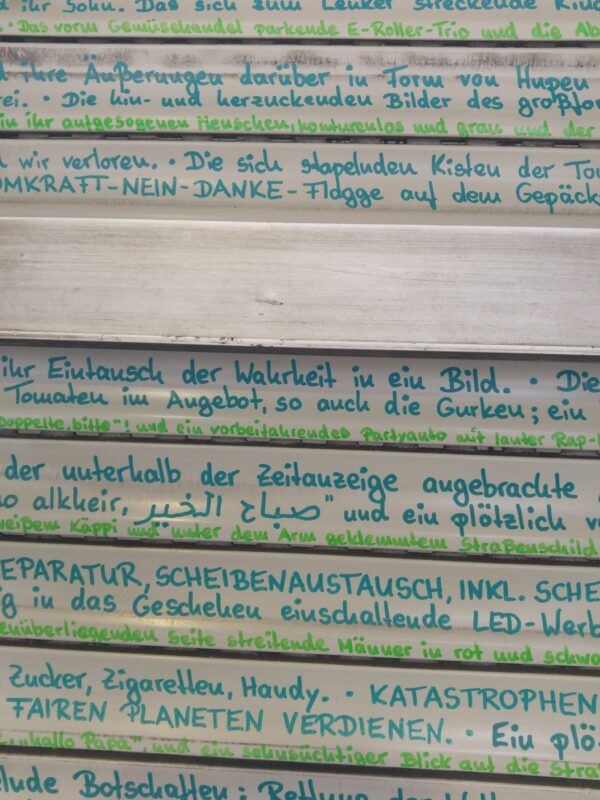 ihr Sohn. Das sich zum Lenker streckende Kind
· Das vorm Gemüsehandel parkende E-Roller-Trio und die Ab
ihre Äußerungen darüber in Form von Hupen
rei. · Die hin- und herzuckenden Bilder des großfor
in ihr aufgesogenen Menschen, konturenlos und grau und der
wir verloren. · Die sich stapelnden Kisten der Tou
OMKRAFT-NEIN-DANKE-Flagge auf dem Gepäcks
ihr Eintausch der Wahrheit in ein Bild. · Die
Tomaten im Angebot, so auch die Gurken; ein
Doppelte, bitte"! und ein vorbeifahrendes Partyauto mit lauter Rap-
der unterhalb der Zeitanzeige angebrachte
o alkheir, صباح الخير" und ein plötzlich v
weißem Käppi und unter dem Arm geklemmtem Straßenschild
EPARATUR, SCHEIBENAUSTAUSCH, INKL. SCHE
ig in das Geschehen einschaltende LED-Werb
enüberliegenden Seite streitende Männer in rot und schwa
Zucker, Zigaretten, Handy. · KATASTROPHEN
FAIREN PLANETEN VERDIENEN. · Ein plö
„hallo Papa", und ein sehnsüchtiger Blick auf die Stra
lnde Botschaften: Rettung der Welt